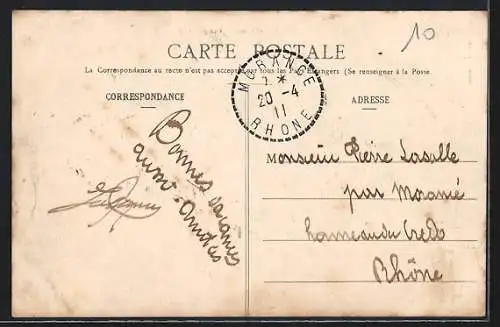 10
CARTE POSTALE
La Correspondance au recto n'est pas acceptée par tous les Pays Étrangers (Se renseigner à la Poste
CORRESPONDANCE
ADRESSE
MORANCE
20 - 4
11
RHONE
Bonnes
amitiés
Monsieur Pierre Lasalle
par Morancé
hameau du Credo
Rhône